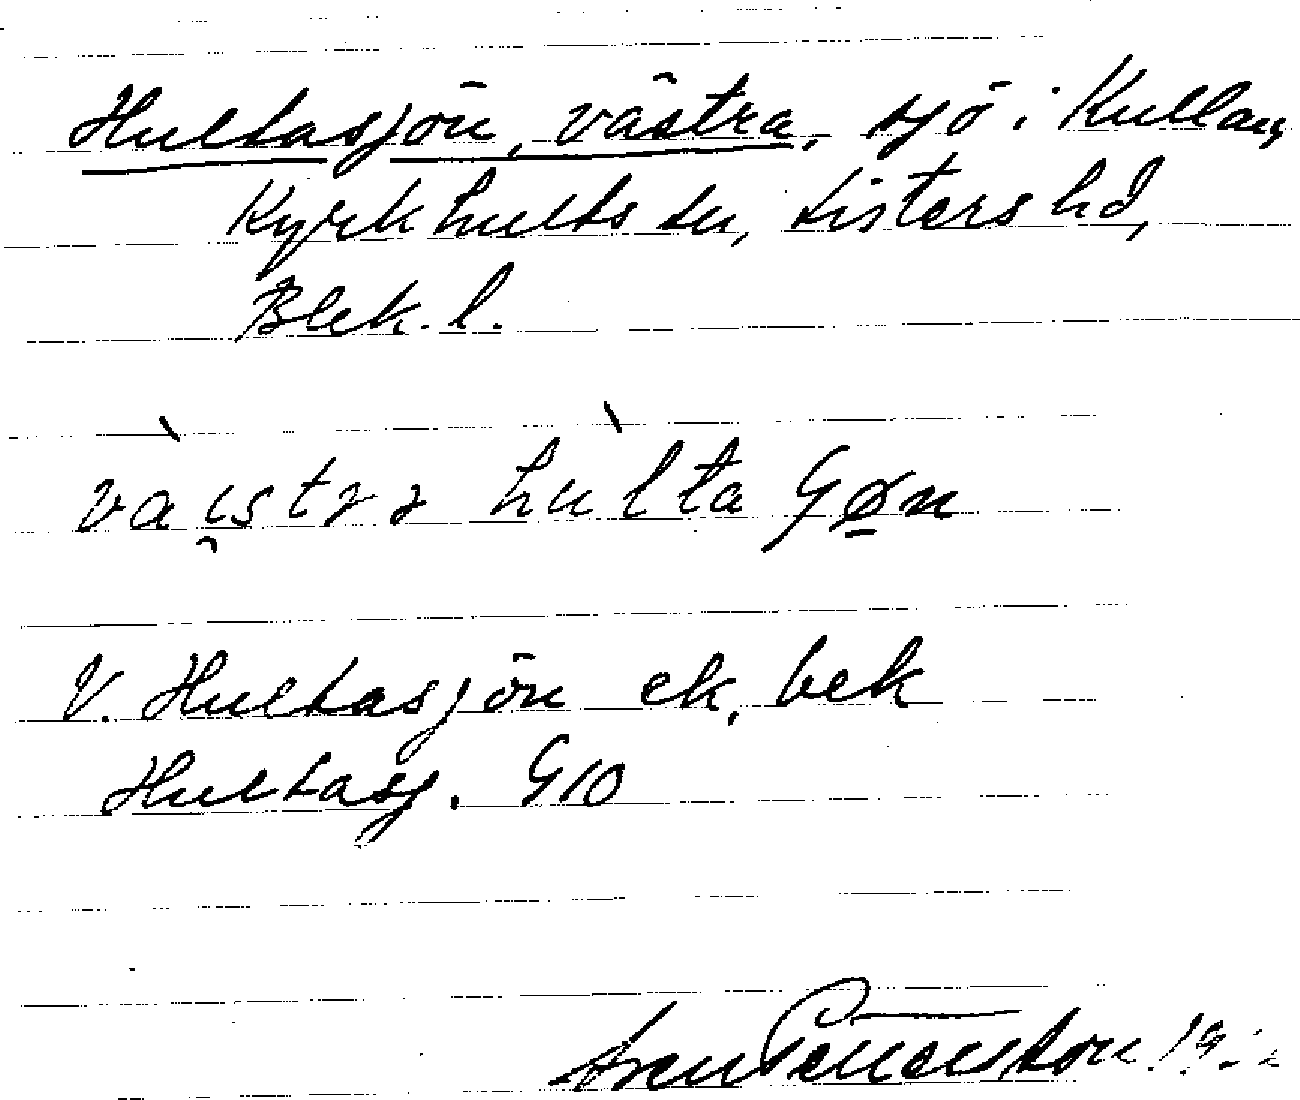 Hultasjön, västra, sjö i Kullan,
Kyrkhults sn, Listers hd,
Blek. l.
hulta
V. Hultasjön ek. bek
Hultasj. G10